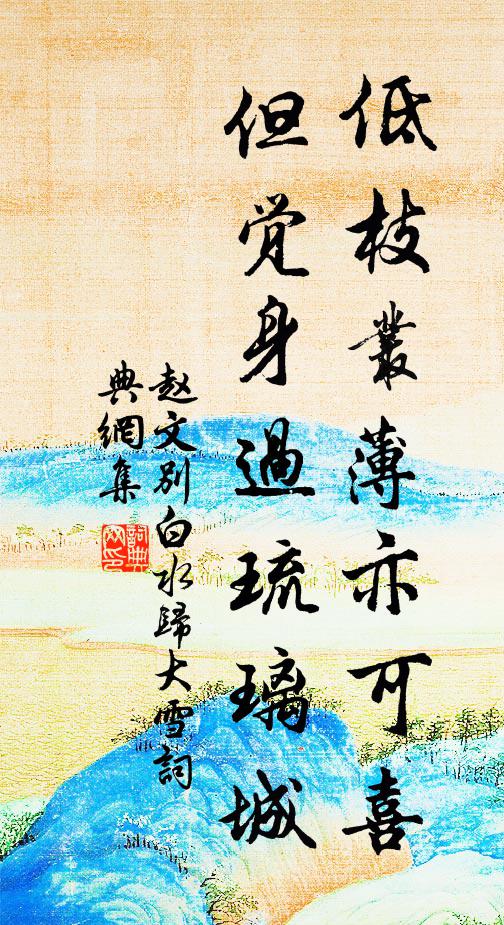 低枝叢薄亦可喜
但觉身過琉璃城
赵文別白水歸大雪詞
典網集
詞典
网印